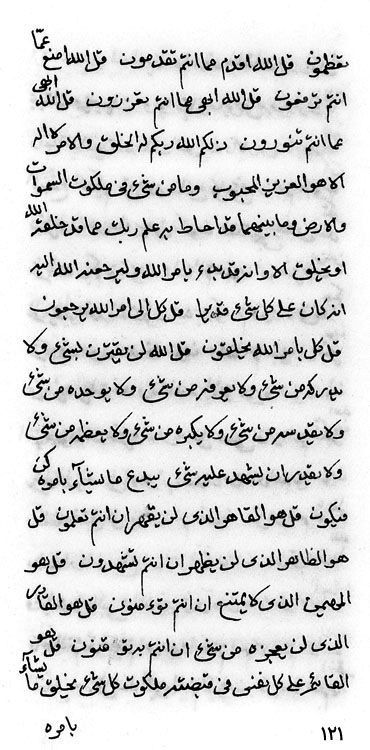 تعظمون قل الله اقدم عما انتم تقدمون قل الله امنع عما
انتم ترفعون قل الله ابهى عما انتم تعززون قل الله ابهى
عما انتم تنورون ذلكم الله ربكم له الخلق والامر لا اله
الا هو العزيز المحبوب وما من شيء في ملكوت السموات
والارض وما بينهما قد احاط به علم ربك مما قد خلقه الله
او يخلق الا وانه قد بدء بامر الله وليرجعنه الله اليه
انه كان على كل شيء قديرا قل كل الى امر الله يرجعون
قل كل بامر الله يخلقون قل الله لن يقترن بشيء ولا
يدركه من شيء ولا يعرفه من شيء ولا يوحده من شيء
ولا يقدسه من شيء ولا يكبره من شيء ولا يعظمه من شيء
ولا يقدر ان يشهد عليه شيء يبدع ما يشآء بامره كن
فيكون قل هو القاهر الذى لن يقهر ان انتم تعلمون قل
هو الظاهر الذى لن يظهر ان انتم تشهدون قل هو
المهيمن الذى لا يمتنع ان انتم توءمنون قل هو القادر
الذى لن يعجزه من شيء ان انتم به توقنون قل هو
القائم على كل نفس في قبضته ملكوت كل شيء يخلق ما يشآء
بامره
١٢١